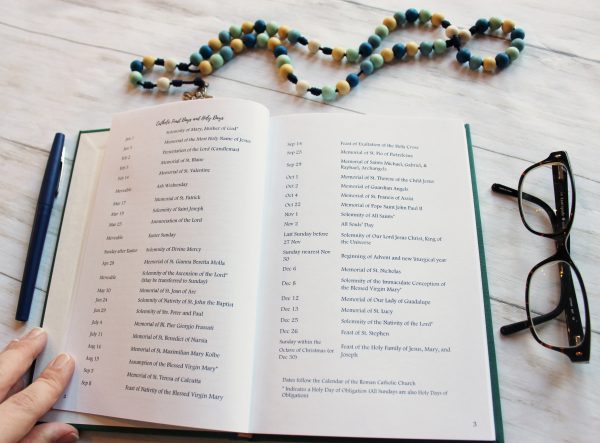 Catholic Feast Days and Holy Days
Jan 1 Solemnity of Mary, Mother of God*
Jan 3 Memorial of the Most Holy Name of Jesus
Feb 2 Presentation of the Lord (Candlemas)
Feb 3 Memorial of St. Blaise
Feb 14 Memorial of St. Valentine
Moveable Ash Wednesday
Mar 17 Memorial of St. Patrick
Mar 19 Solemnity of Saint Joseph
Mar 25 Annunciation of the Lord
Moveable Easter Sunday
Sunday after Easter Solemnity of Divine Mercy
Apr 28 Memorial of St. Gianna Beretta Molla
Moveable Solemnity of the Ascension of the Lord*
(May be transferred to Sunday)
May 30 Memorial of St. Joan of Arc
Jun 24 Solemnity of Nativity of St. John the Baptist
Jun 29 Solemnity of Sts. Peter and Paul
July 4 Memorial of Bl. Pier Giorgio Frassati
July 11 Memorial of St. Benedict of Nursia
Aug 14 Memorial of St. Maximilian Mary Kolbe
Aug 15 Assumption of the Blessed Virgin Mary*
Sep 5 Memorial of St. Teresa of Calcutta
Sep 8 Feast of Nativity of the Blessed Virgin Mary
2
Sep 14 Feast of Exaltation of the Holy Cross
Sep 23 Memorial of St. Pio of Pietrelcina
Sep 29 Memorial of Saints Michael, Gabriel, &
Raphael, Archangels
Oct 1 Memorial of St. Therese of the Child Jesus
Oct 2 Memorial of Guardian Angels
Oct 4 Memorial of St. Francis of Assisi
Oct 22 Memorial of Pope Saint John Paul II
Nov 1 Solemnity of All Saints*
Nov 2 All Souls' Day
Last Sunday before
27 Nov Solemnity of Our Lord Jesus Christ, King of
the Universe
Sunday nearest Nov
30 Beginning of Advent and new liturgical year
Dec 6 Memorial of St. Nicholas
Dec 8 Solemnity of the Immaculate Conception of
the Blessed Virgin Mary*
Dec 12 Memorial of Our Lady of Guadalupe
Dec 13 Memorial of St. Lucy
Dec 25 Solemnity of the Nativity of the Lord*
Dec 26 Feast of St. Stephen
Sunday within the
Octave of Christmas (or
Dec 30) Feast of the Holy Family of Jesus, Mary, and
Joseph
Dates follow the Calendar of the Roman Catholic Church
* Indicates a Holy Day of Obligation (All Sundays are also Holy Days of
Obligation)
3